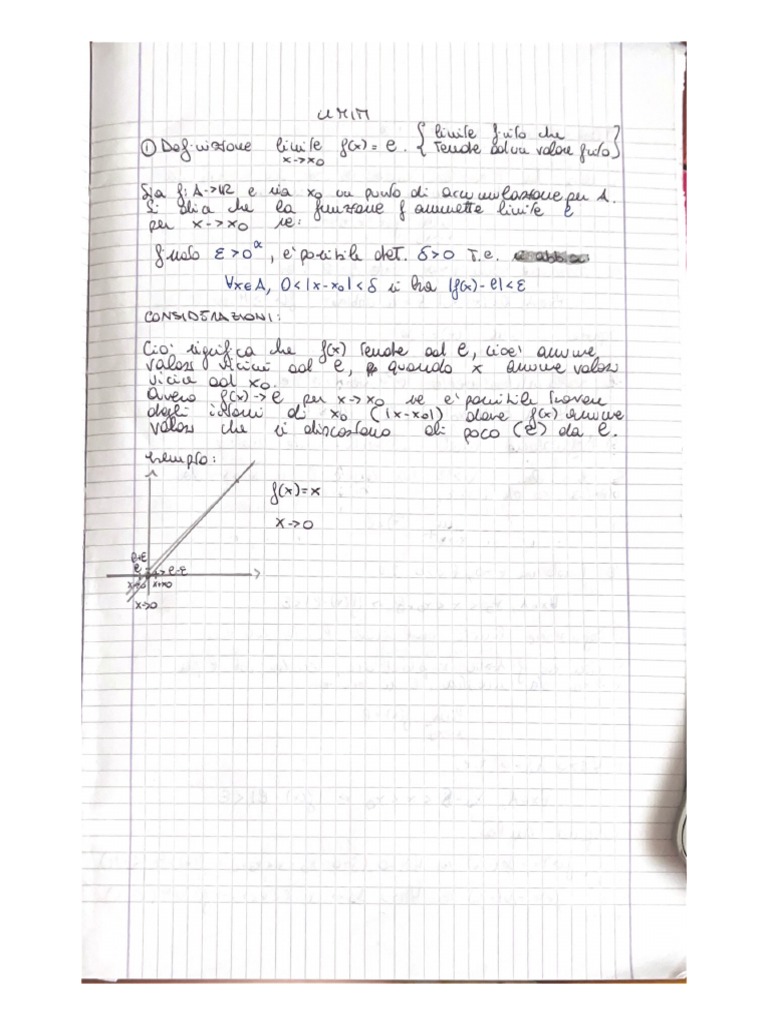 LIMITI
① Definizione limite f(x) = l. {limite finito che
x->x0 tende ad un valore finito}
Sia f: A->IR e sia x0 un punto di accumulazione per A.
Si dica che la funzione f ammette limite l
per x->x0 se:
fissato ε>0, e' possibile det. δ>0 t.c.
∀x∈A, 0<|x-x0|<δ si ha |f(x)-l|<ε
CONSIDERAZIONI:
Ciò significa che f(x) tende ad l, cioe' assume
valori vicini ad l, quando x assume valori
vicini ad x0.
Avero f(x)->l per x->x0 se e' possibile trovare
degli intorni di x0 (|x-x0|) dove f(x) assume
valori che si discostano di poco (ε) da l.
Esempio:
f(x)=x
x->0
l+ε
l
l-ε
x->0